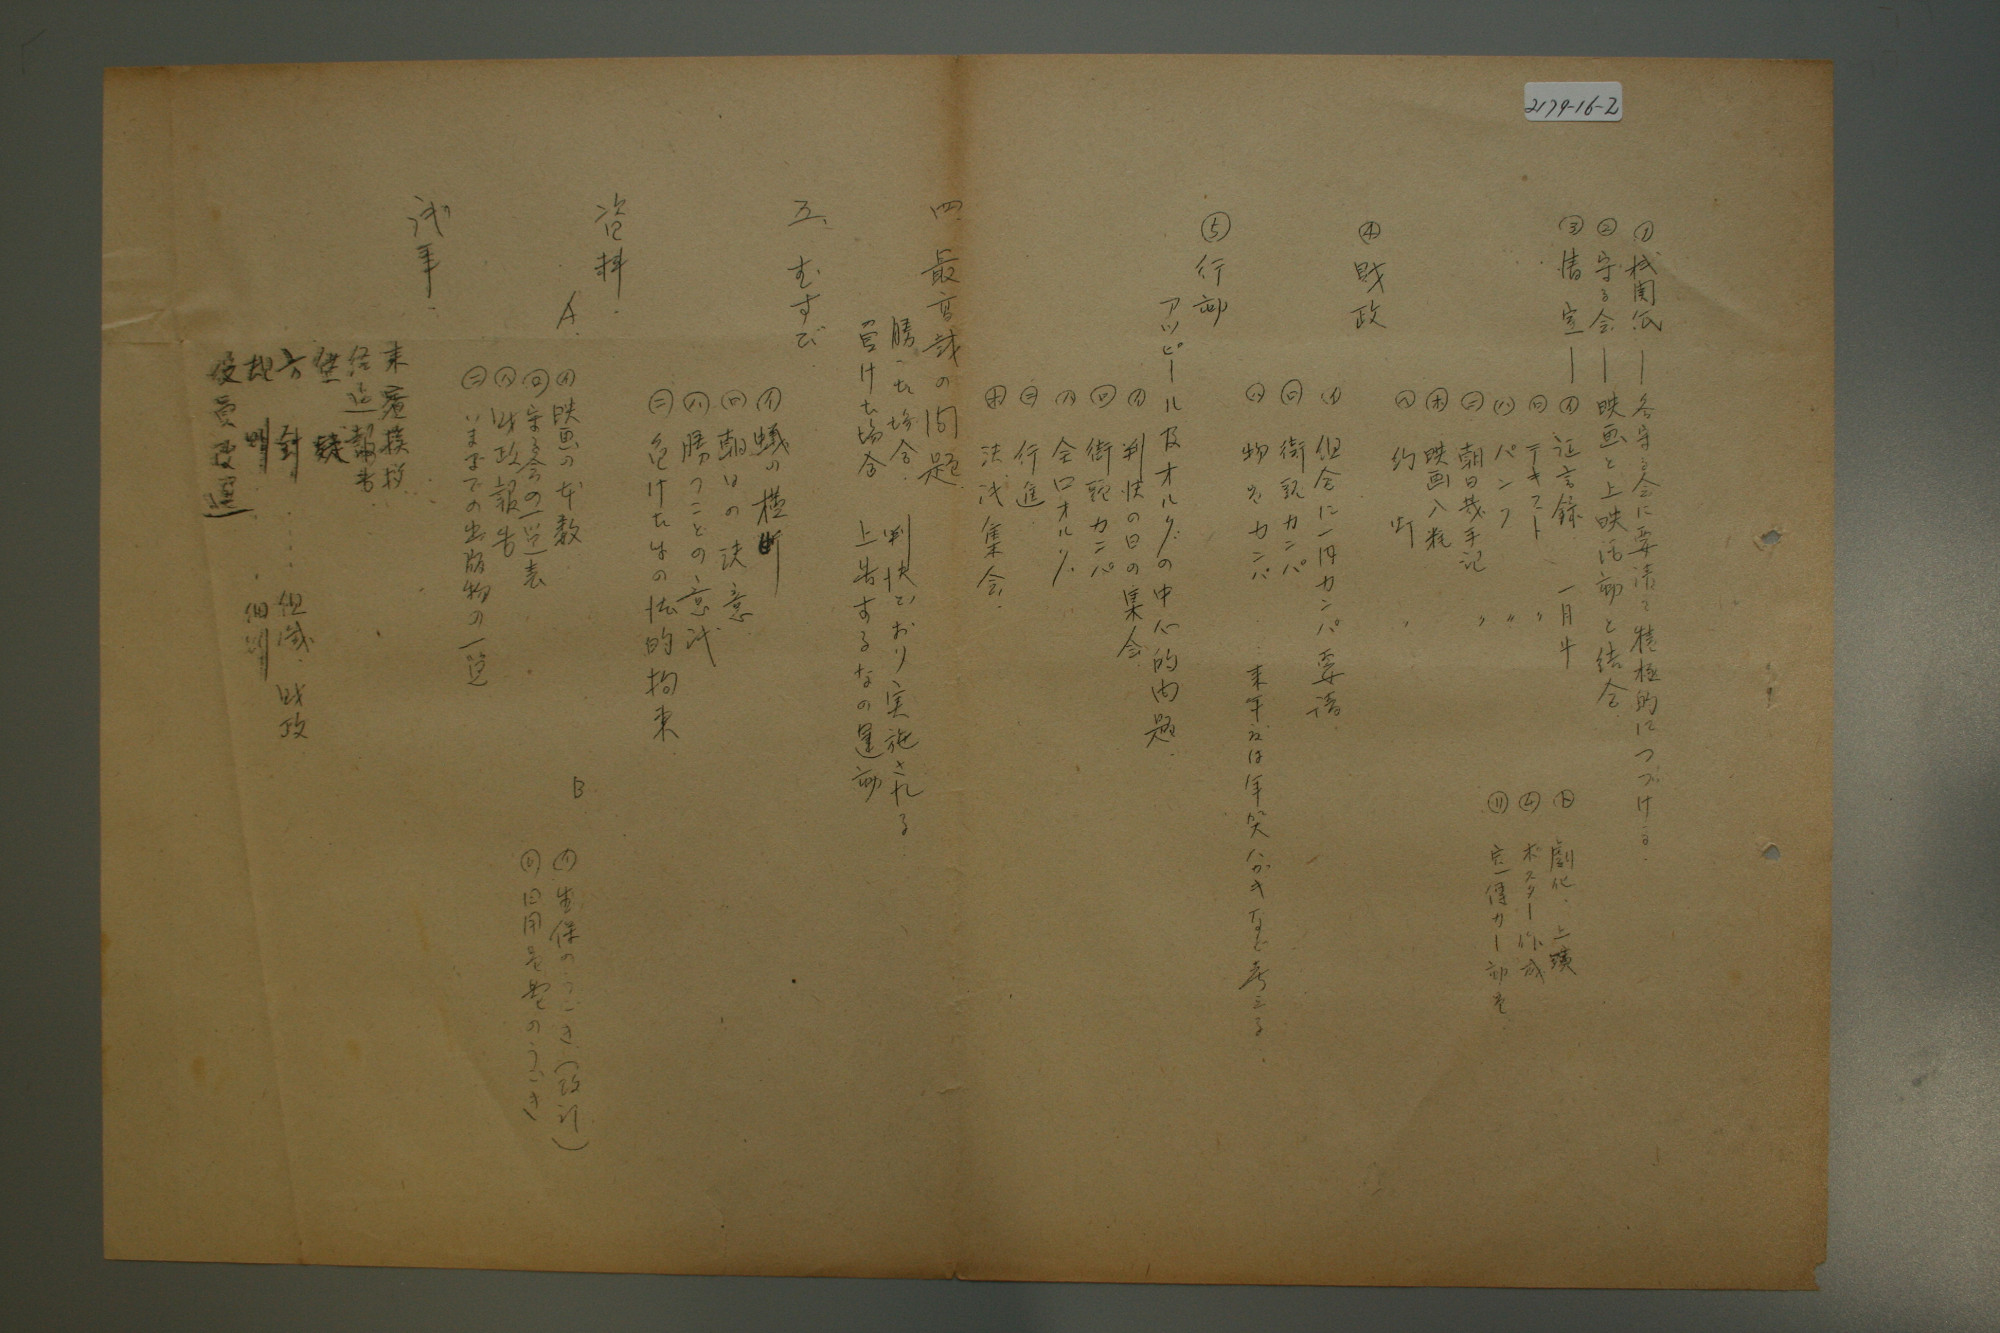 2179-16-2
① 機関紙 ― 各守る会に要請て積極的につづける.
② 守る会 ― 映画と上映活動と結合
③ 情宣 ― ㋑ 証言録 一月半
㋺ テキスト 〃
㋩ パンフ 〃
㋥ 朝日裁手記 〃
㋭ 映画入耗
㋬ 幻灯 〃
㋣ 劇化、上演
㋠ ポスター作成
㋷ 宣傳カー動き
④ 財政
㋑ 組合に一円カンパ要請.
㋺ 街頭カンパ
㋩ 物ぷカンパ … 来年は年賀ハガキなど考える.
⑤ 行動
アッピール及オルグの中心的内題.
㋑ 判決の日の集会
㋺ 街頭カンパ
㋩ 全口オルグ
㋥ 行進
㋭ 決議集会.
四. 最高裁の問題
勝った場合. 判決どおり実施される.
負けた場合 上告するなの運動
五、むすび
㋑ 蟻の横断
㋺ 朝日の決意
㋩ 勝つことの意識
㋥ 負けた時の法的拘束.
資料. A.
㋑ 映画の本数.
㋺ 守る会の一覧表
㋩ 財政報告
㋥ いままでの出版物の一覧
B
㋑ 生保のうごき(改訂)
㋺ 日用品費のうごき
議事.
来賓挨拶
経過報告
質疑
方針 …… 組織. 財政
規
役員選